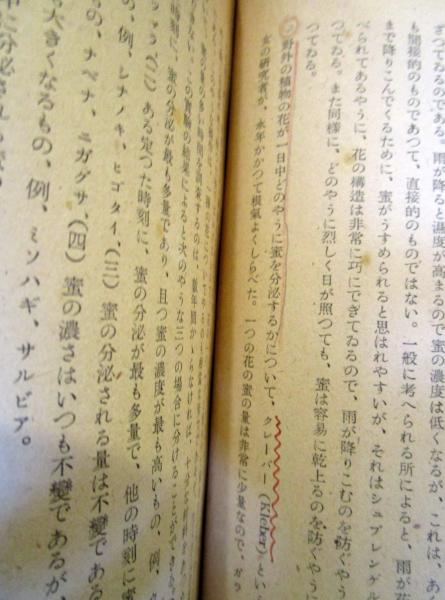 さつてゐるのである。雨が降ると濕度が高まるので蜜の濃度は低くなるが、これは、あく
も間接的のものであつて、直接的のものではない。一般に考へられる所によると、雨が花
まで降りこんでくるために、蜜がうすめられると思はれやすいが、それはシュプレンゲル
べられてあるやうに、花の構造は非常に巧にできてゐるので、雨が降りこむのを防ぐやう
つてゐる。また同様に、どのやうに烈しく日が照つても、蜜は容易に乾上るのを防ぐやうに
つてゐる。
野外の植物の花が一日中どのやうに蜜を分泌するかについて、クレーバー(Kleber)とい
女の研究者が、永年かかつて根氣よくしらべた。一つの花の蜜の量は非常に少量なので、ガラ
蜜の量の多い時間を調査するのは、數年間かからなければ、十分な材料を
きない。この實驗の結果によると次のやうな三つの場合に分けることができた。
時刻に、蜜の分泌が最も多量であり、且つ蜜の濃度が最も高いもの、例、
(二) ある定つた時刻に、蜜の分泌が最も多量で、他の時刻に蜜
の、例、シナノキ、ヒゴタイ、(三) 蜜の分泌される量は不變である
もの、ナベナ、ニガグサ (四) 蜜の濃さはいつも不變であるが、
も大きくなるもの、例、ミソハギ、サルビア。
に分泌される